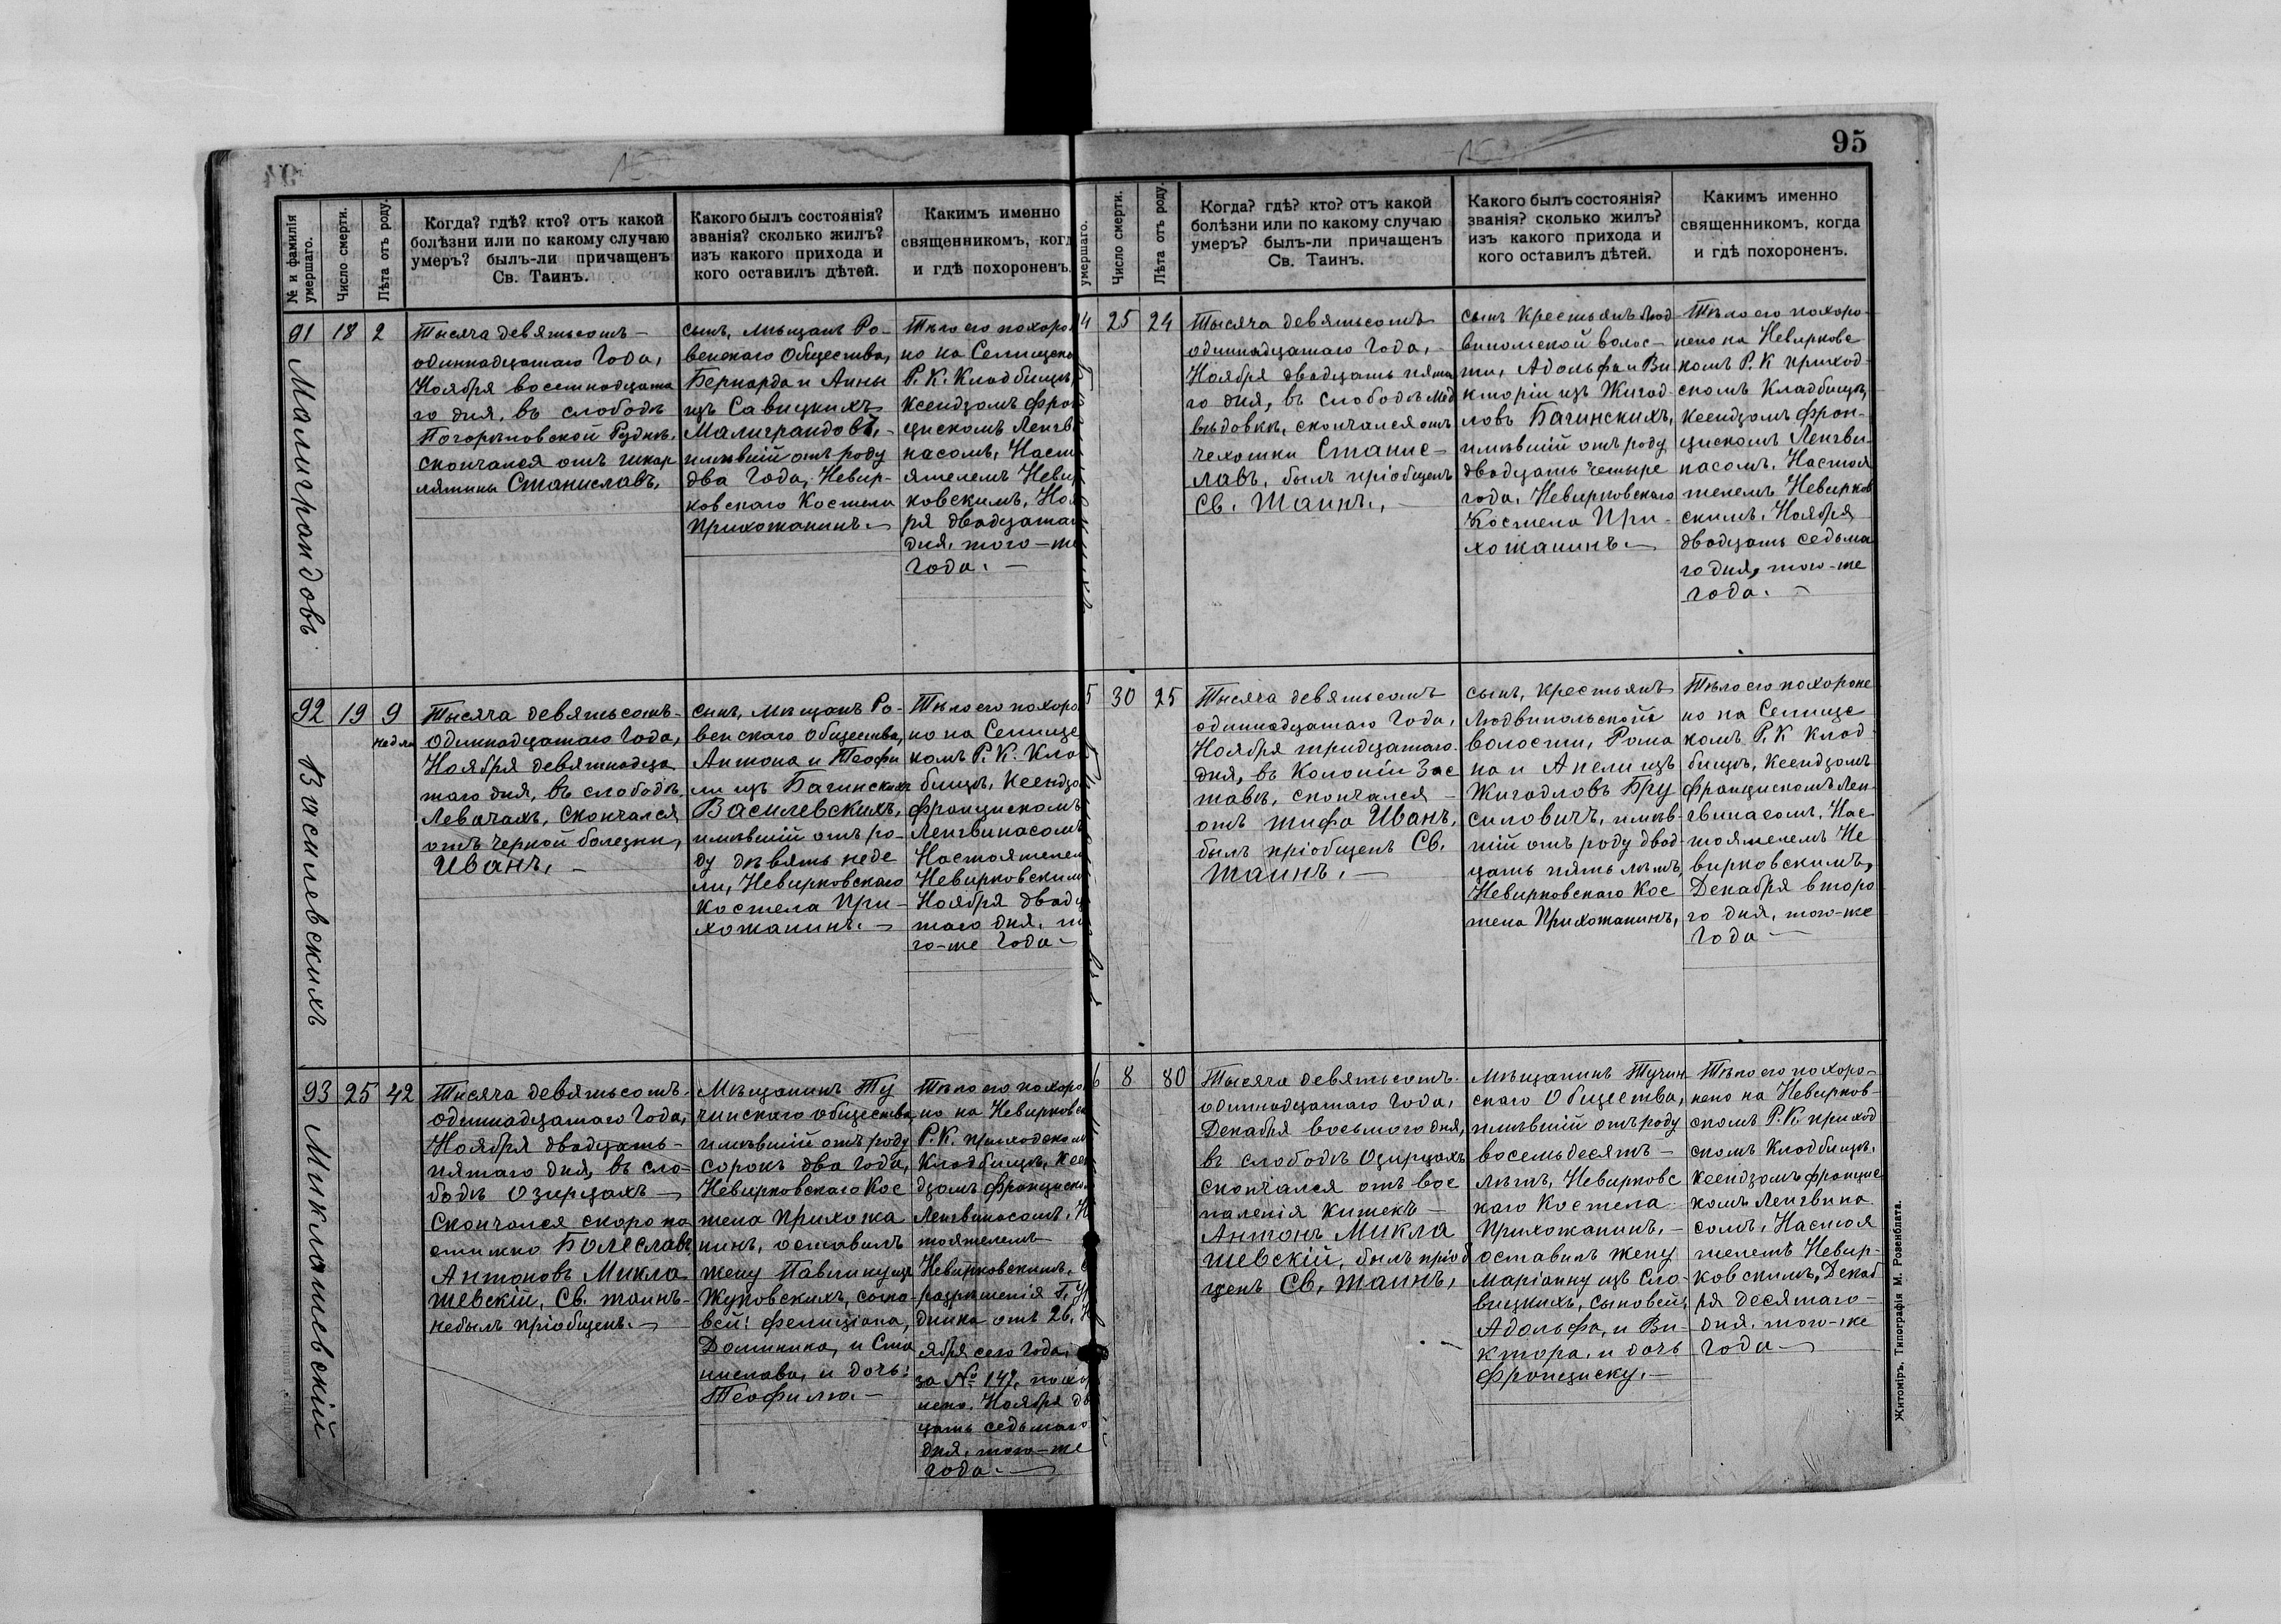 95
№ и фамилія умершаго.
Число смерти.
Лѣта отъ роду.
Когда? гдѣ? кто? отъ какой
болѣзни или по какому случаю
умеръ? былъ-ли причащенъ
Св. Таинъ.
Какого былъ состоянія?
званія? сколько жилъ?
изъ какого прихода и
кого оставилъ дѣтей.
Какимъ именно
священникомъ, когд
и гдѣ похороненъ.
91 18 2
Малиграндовъ
Тысяча девятьсотъ-
одиннадцатаго Года,
Ноября восемнадцата
го дня, въ слободѣ
Погорѣловской Руднѣ,
скончался отъ шкар
лятины Станиславъ,
сынъ, мѣщанъ Ро-
венскаго Общества,
Бернарда и Анны
изъ Савицкихъ
Малиграндовъ,-
имѣвшій отъ роду
два Года, Невир-
ковскаго Костела
Прихожанинъ.-
Тѣло его похоро
но на Селищско
Р. К. Кладбищѣ,
Ксендзомъ Фран
цискомъ Ленгви
насомъ, Наст
ятелемъ Неви
ковскимъ, Ноя
ря двадцата
дня, того-же
Года.-
92 19 9
недѣл
Василевскихъ
Тысяча девятьсотъ-
Одиннадцатаго Года,
Ноября девятнадца
таго дня, въ слободѣ.
Левачахъ, Скончался
отъ черной болезни,
Иванъ,-
сынъ, мѣщанъ Ро-
венскаго Общества,
Антона и Теофи
ли изъ Багинскихъ
Василевскихъ,
имѣвшій отъ ро-
ду девять неде
ли, Невирковскаго
Костела При-
хожанинъ.-
Тѣло его похоро
но на Селище
комъ Р. К. Кла
бищѣ, Ксендзо
Францискомъ
Ленгвинасомъ
Настоятелем
Невирковским
Ноября двадц
таго дня, т
го-же Года-
93 25 42
Миклашевскій
Тысяча девятьсотъ
одиннадцатаго Года,
Ноября двадцать-
пятаго дня, въ сло-
бодѣ Озирцахъ-
Скончался скоропо
стижно Болеславъ
Антоновъ Микла
шевскій, Св. таинъ-
небылъ пріобщенъ.-
Мѣщанинъ Ту
чинскаго общества,
имѣвшій отъ роду
сорокъ два года,
Невирковскаго Кос
тела Прихожа
нинъ, оставилъ
жену Павлину изъ
Жуковскихъ, сыно-
вей: Фелиціана,
Доминика, и Ста
нислава, и дочь:
Теофилю.-
Тѣло его похоро
но на Невирковс
Р. К. приходском
Кладбищѣ, Ксен
дзомъ Франциско
Ленгвинасомъ, Н
тоятелемъ
Невирковскимъ,
разрѣшенія Г. У
дника отъ 26, Н
ября сего года,
за № 147, похор
нено, Ноября дв
цать седьмаго
дня, того-же
года.-
умершаго.
Число смерти.
Лѣта отъ роду.
Когда? гдѣ? кто? отъ какой
болѣзни или по какому случаю
умеръ? былъ-ли причащенъ
Св. Таинъ.
Какого былъ состоянія?
званія? сколько жилъ?
изъ какого прихода и
кого оставилъ дѣтей.
Какимъ именно
священникомъ, когда
и гдѣ похороненъ.
4 25 24
Тысяча девятьсотъ
одиннадцатаго Года,
Ноября двадцать пята
го дня, въ слободѣ Мед
вѣдовкѣ, скончался отъ
чехотки Станис-
лавъ, былъ пріобщенъ
Св. Таинъ,-
сынъ Крестьянъ Люд
випольской волос-
ти, Адольфа и Ви
кторіи изъ Жигад-
ловъ Багинскихъ,
имѣвшій отъ роду
двадцать четыре
года, Невирковскаго
Костела При-
хожанинъ.-
Тѣло его похоро
нено на Невирковс
комъ Р. К приход-
скомъ Кладбищѣ,
Ксендзомъ Фран-
цискомъ Ленгви-
насомъ, Настоя
телемъ Невирков
скимъ, Ноября
двадцать седьма
го дня, того-же
Года.-
5 30 25
Тысяча девятьсотъ
одиннадцатаго Года,
Ноября тридцатаго
дня, въ Колоніи Зас
тавѣ, скончался-
отъ тифа Иванъ,
былъ пріобщенъ Св.
Таинъ.-
сынъ, крестьянъ
Людвипольской
волости, Рома
на и Анели изъ
Жигадловъ Бру
силовичъ, имѣв-
шій отъ роду двад
цать пять лѣтъ,
Невирковскаго Кос
тела Прихожанинъ,
Тѣло его похороне
но на Селище
комъ Р. К Клад-
бищѣ, Ксендзомъ
Францискомъ Лен-
гвинасомъ, Нас
тоятелемъ Не
вирковскимъ,
Декабря второ
го дня, того-же
Года-
6 8 80
Тысяча девятьсотъ
одиннадцатаго Года,
Декабря восьмого дня,
въ слободѣ Озирцахъ
скончался отъ вос
паленія Кишекъ-
Антонъ Микла
шевскій, былъ пріоб
щенъ Св. Таинъ,
мѣщанинъ Тучин-
скаго Общества,
имѣвшій отъ роду
восемьдесятъ-
лѣтъ, Невирковс
каго Костела
Прихожанинъ,-
оставилъ жену
Маріанну изъ Сло-
вицкихъ, сыновей:
Адольфа, и Ви-
ктора, и дочь
Франциску.-
Тѣло его похоро-
нено на Невирков-
скомъ Р. К. приход
скомъ Кладбищѣ,
Ксендзомъ францис
комъ Ленгвина
сомъ, Настоя
телемъ Невир-
ковскимъ, Декаб
ря десятаго-
дня, того-же
года-
Житоміръ. Типографія М. Розенблата.